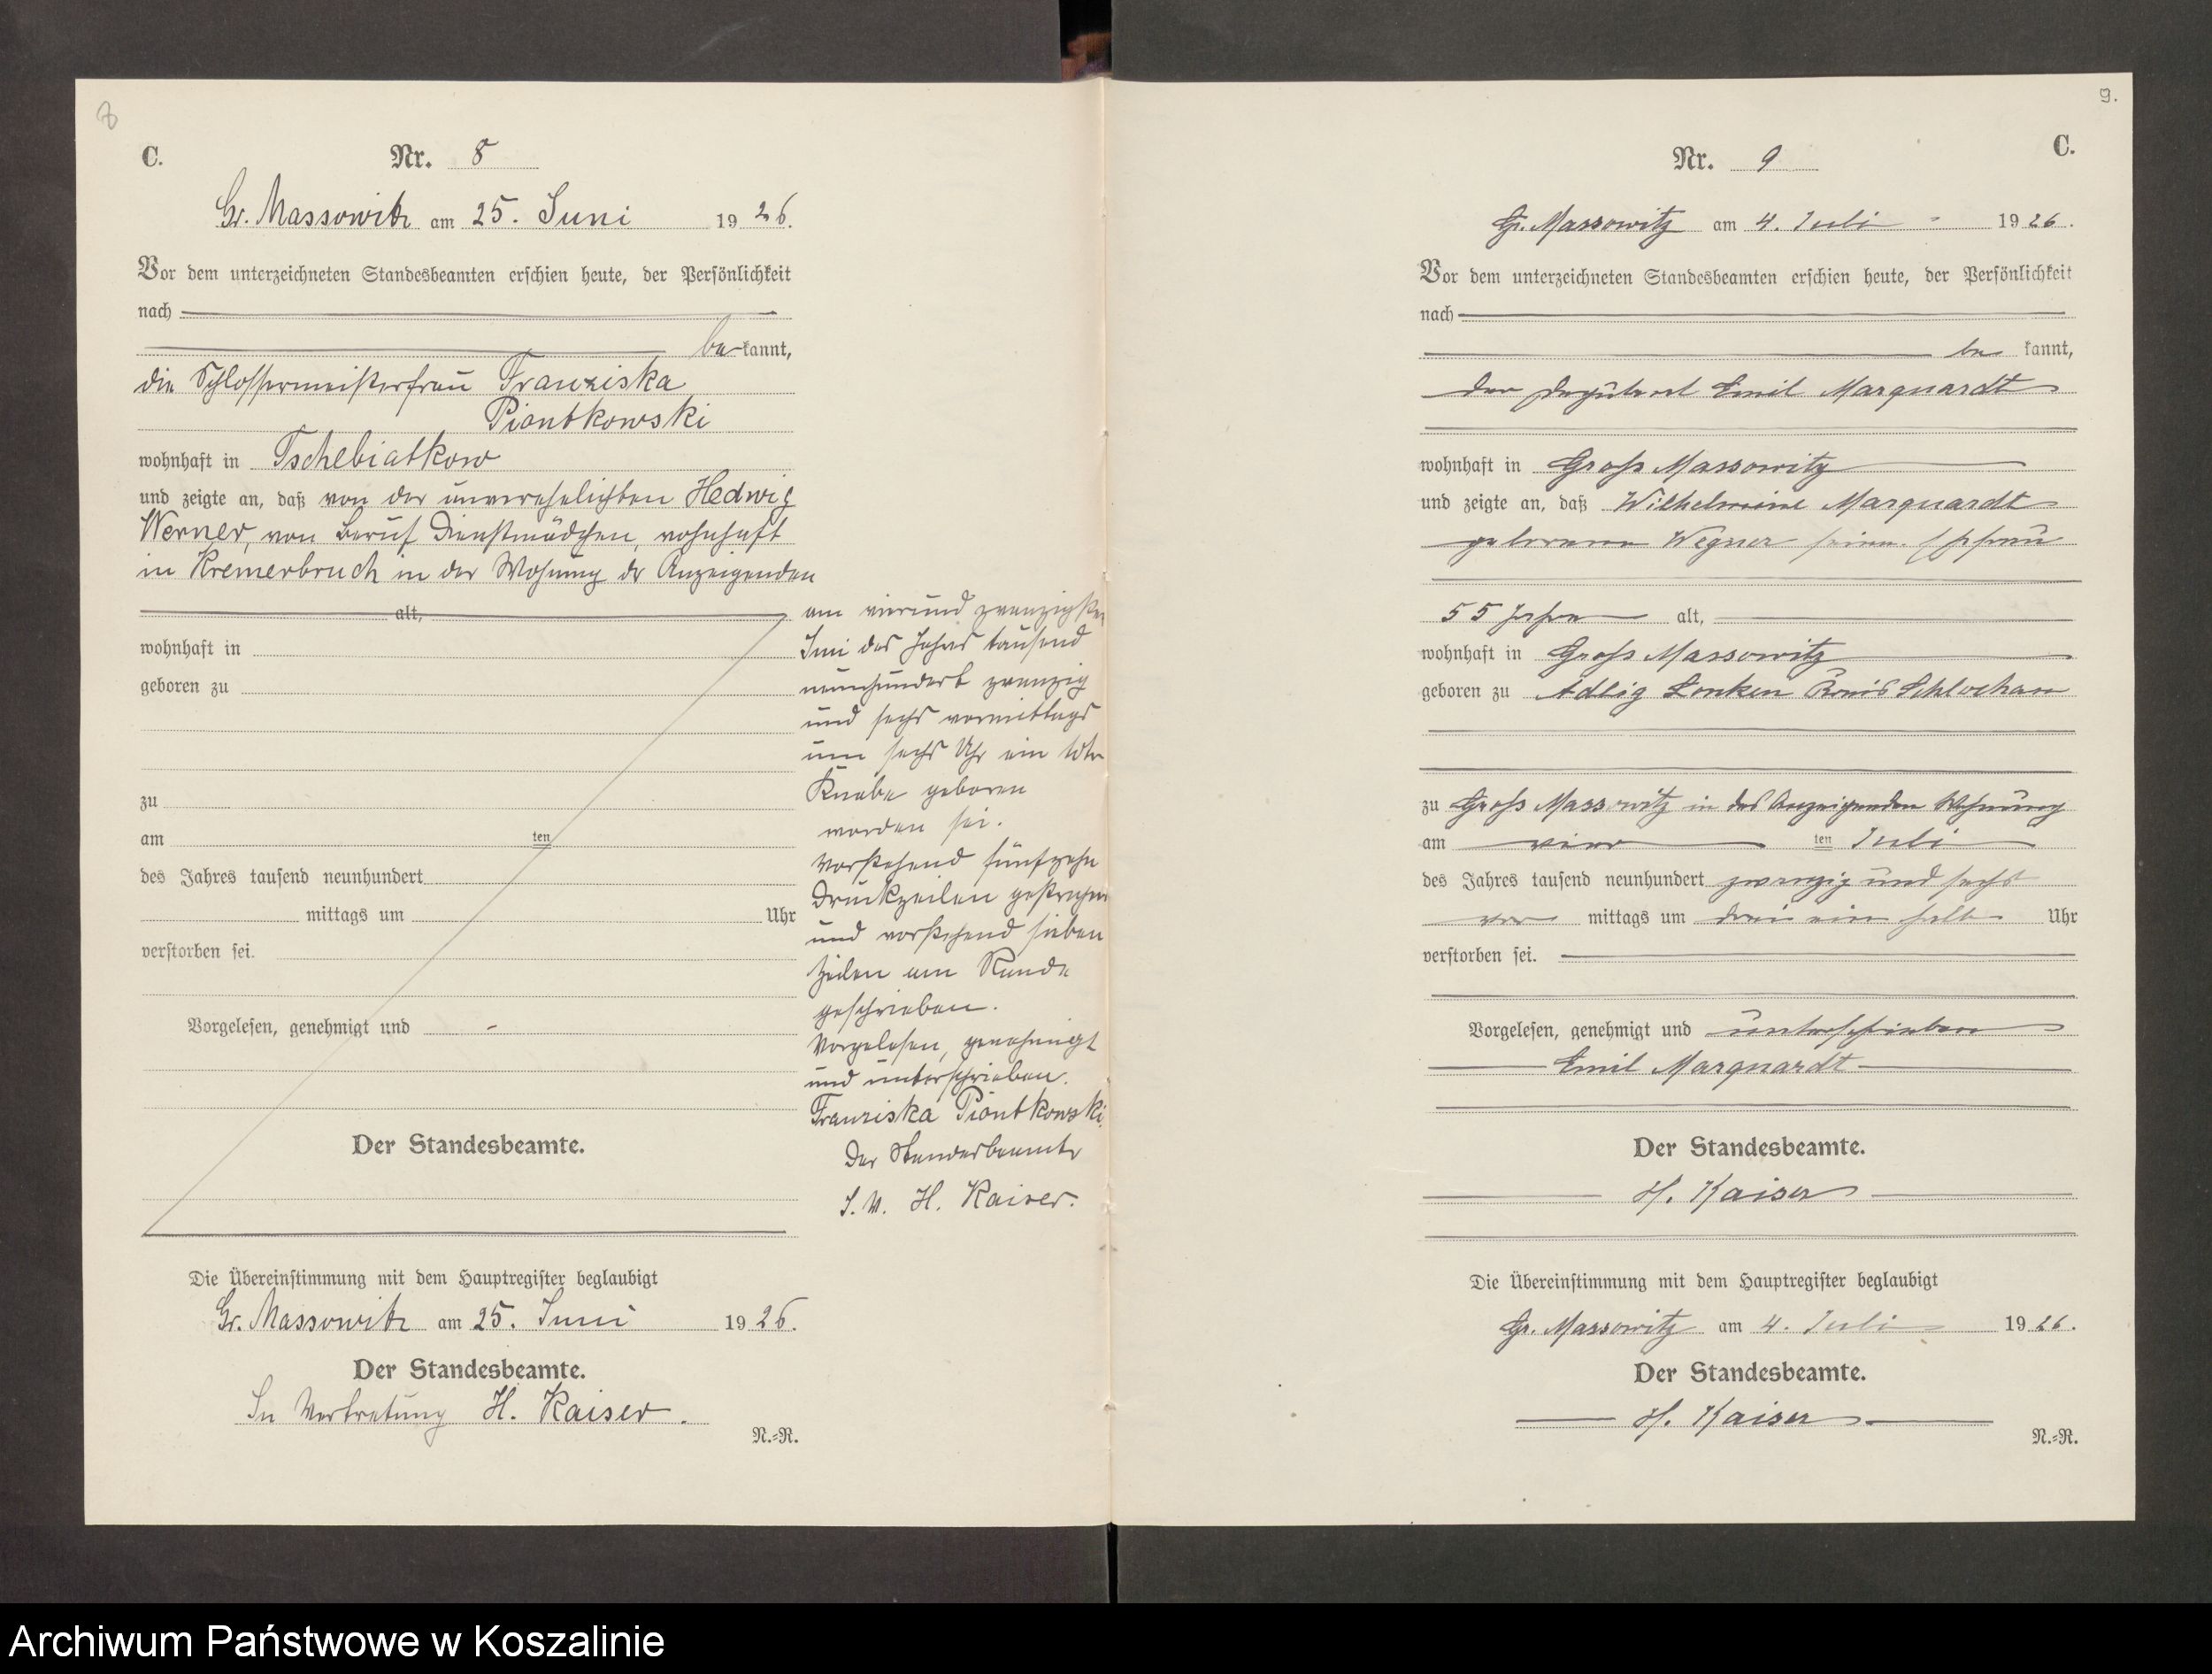 8
C.
Nr. 8
Gr. Massowitz am 25. Juni 1926.
Vor dem unterzeichneten Standesbeamten erschien heute, der Persönlichkeit
nach
be kannt,
die Schlossermeisterfrau Franziska
Piontkowski
wohnhaft in Tschebiatkow
und zeigte an, daß von der unverehelichten Hedwig
Werner, von Beruf Dienstmädchen, wohnhaft
in Kremerbruch in der Wohnung der Anzeigenden
alt,
wohnhaft in
geboren zu
zu
am ten
des Jahres tausend neunhundert
mittags um Uhr
verstorben sei.
Vorgelesen, genehmigt und
Der Standesbeamte.
am vierund zwanzigsten
Juni des Jahres tausend
neunhundert zwanzig
und sechs vormittags
um sechs Uhr ein toter
Knabe geboren
worden sei.
Vorstehend fünfzehn
Druckzeilen gestrichen
und vorstehend sieben
Zeilen am Rande
geschrieben.
Vorgelesen, genehmigt
und unterschrieben.
Franziska Piontkowski.
Der Standesbeamte
I. V. H. Kaiser.
Die Übereinstimmung mit dem Hauptregister beglaubigt
Gr. Massowitz am 25. Juni 1926.
Der Standesbeamte.
In Vertretung H. Kaiser.
N.=R.
9.
C.
Nr. 9
Gr. Massowitz am 4. Juli 1926.
Vor dem unterzeichneten Standesbeamten erschien heute, der Persönlichkeit
nach
be kannt,
der Deputant Emil Marquardt
wohnhaft in Groß Massowitz
und zeigte an, daß Wilhelmine Marquardt
geborene Wegner seine Ehefrau
55 Jahre alt,
wohnhaft in Groß Massowitz
geboren zu Adlig Lonken Kreis Schlochau
zu Groß Massowitz in des Anzeigenden Wohnung
am vier ten Juli
des Jahres tausend neunhundert zwanzig und sechs
vor mittags um drei ein halb Uhr
verstorben sei.
Vorgelesen, genehmigt und unterschrieben
Emil Marquardt
Der Standesbeamte.
H. Kaiser
Die Übereinstimmung mit dem Hauptregister beglaubigt
Gr. Massowitz am 4. Juli 1926.
Der Standesbeamte.
H. Kaiser
N.=R.
Archiwum Państwowe w Koszalinie